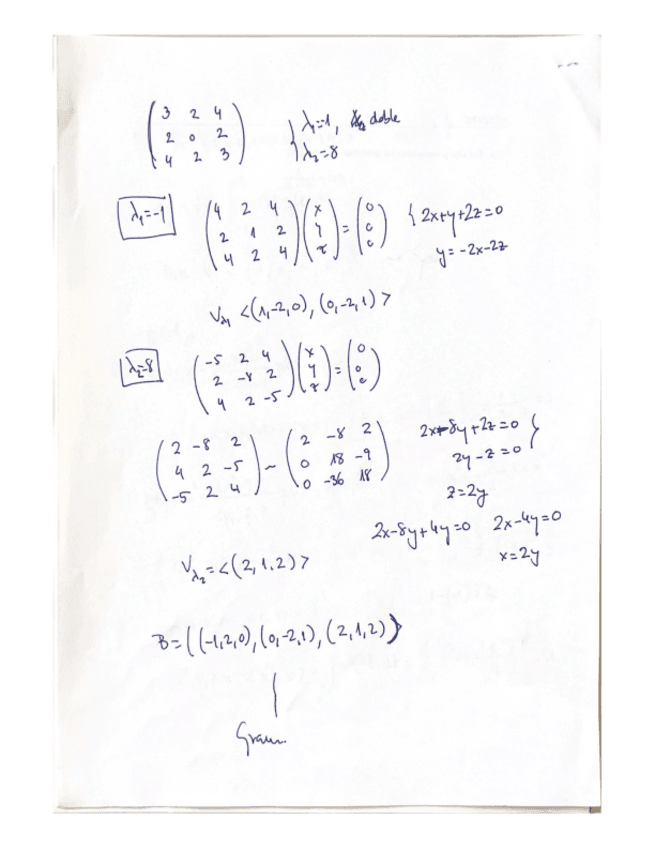 (3 2 4
2 0 2
4 2 3) } λ₁=-1, doble
λ₂=8
λ₁=-1
(4 2 4
2 1 2
4 2 4)(x
y
z)=(0
0
0) { 2x+y+2z=0
y=-2x-2z
Vλ₁ <(1,-2,0), (0,-2,1)>
λ₂=8
(-5 2 4
2 -8 2
4 2 -5)(x
y
z)=(0
0
0)
(2 -8 2
4 2 -5
-5 2 4) ~ (2 -8 2
0 18 -9
0 -36 18)
2x-8y+2z=0
2y-z=0 }
z=2y
2x-8y+4y=0 2x-4y=0
x=2y
Vλ₂=<(2,1,2)>
B=((-1,2,0),(0,-2,1),(2,1,2))
Gram.